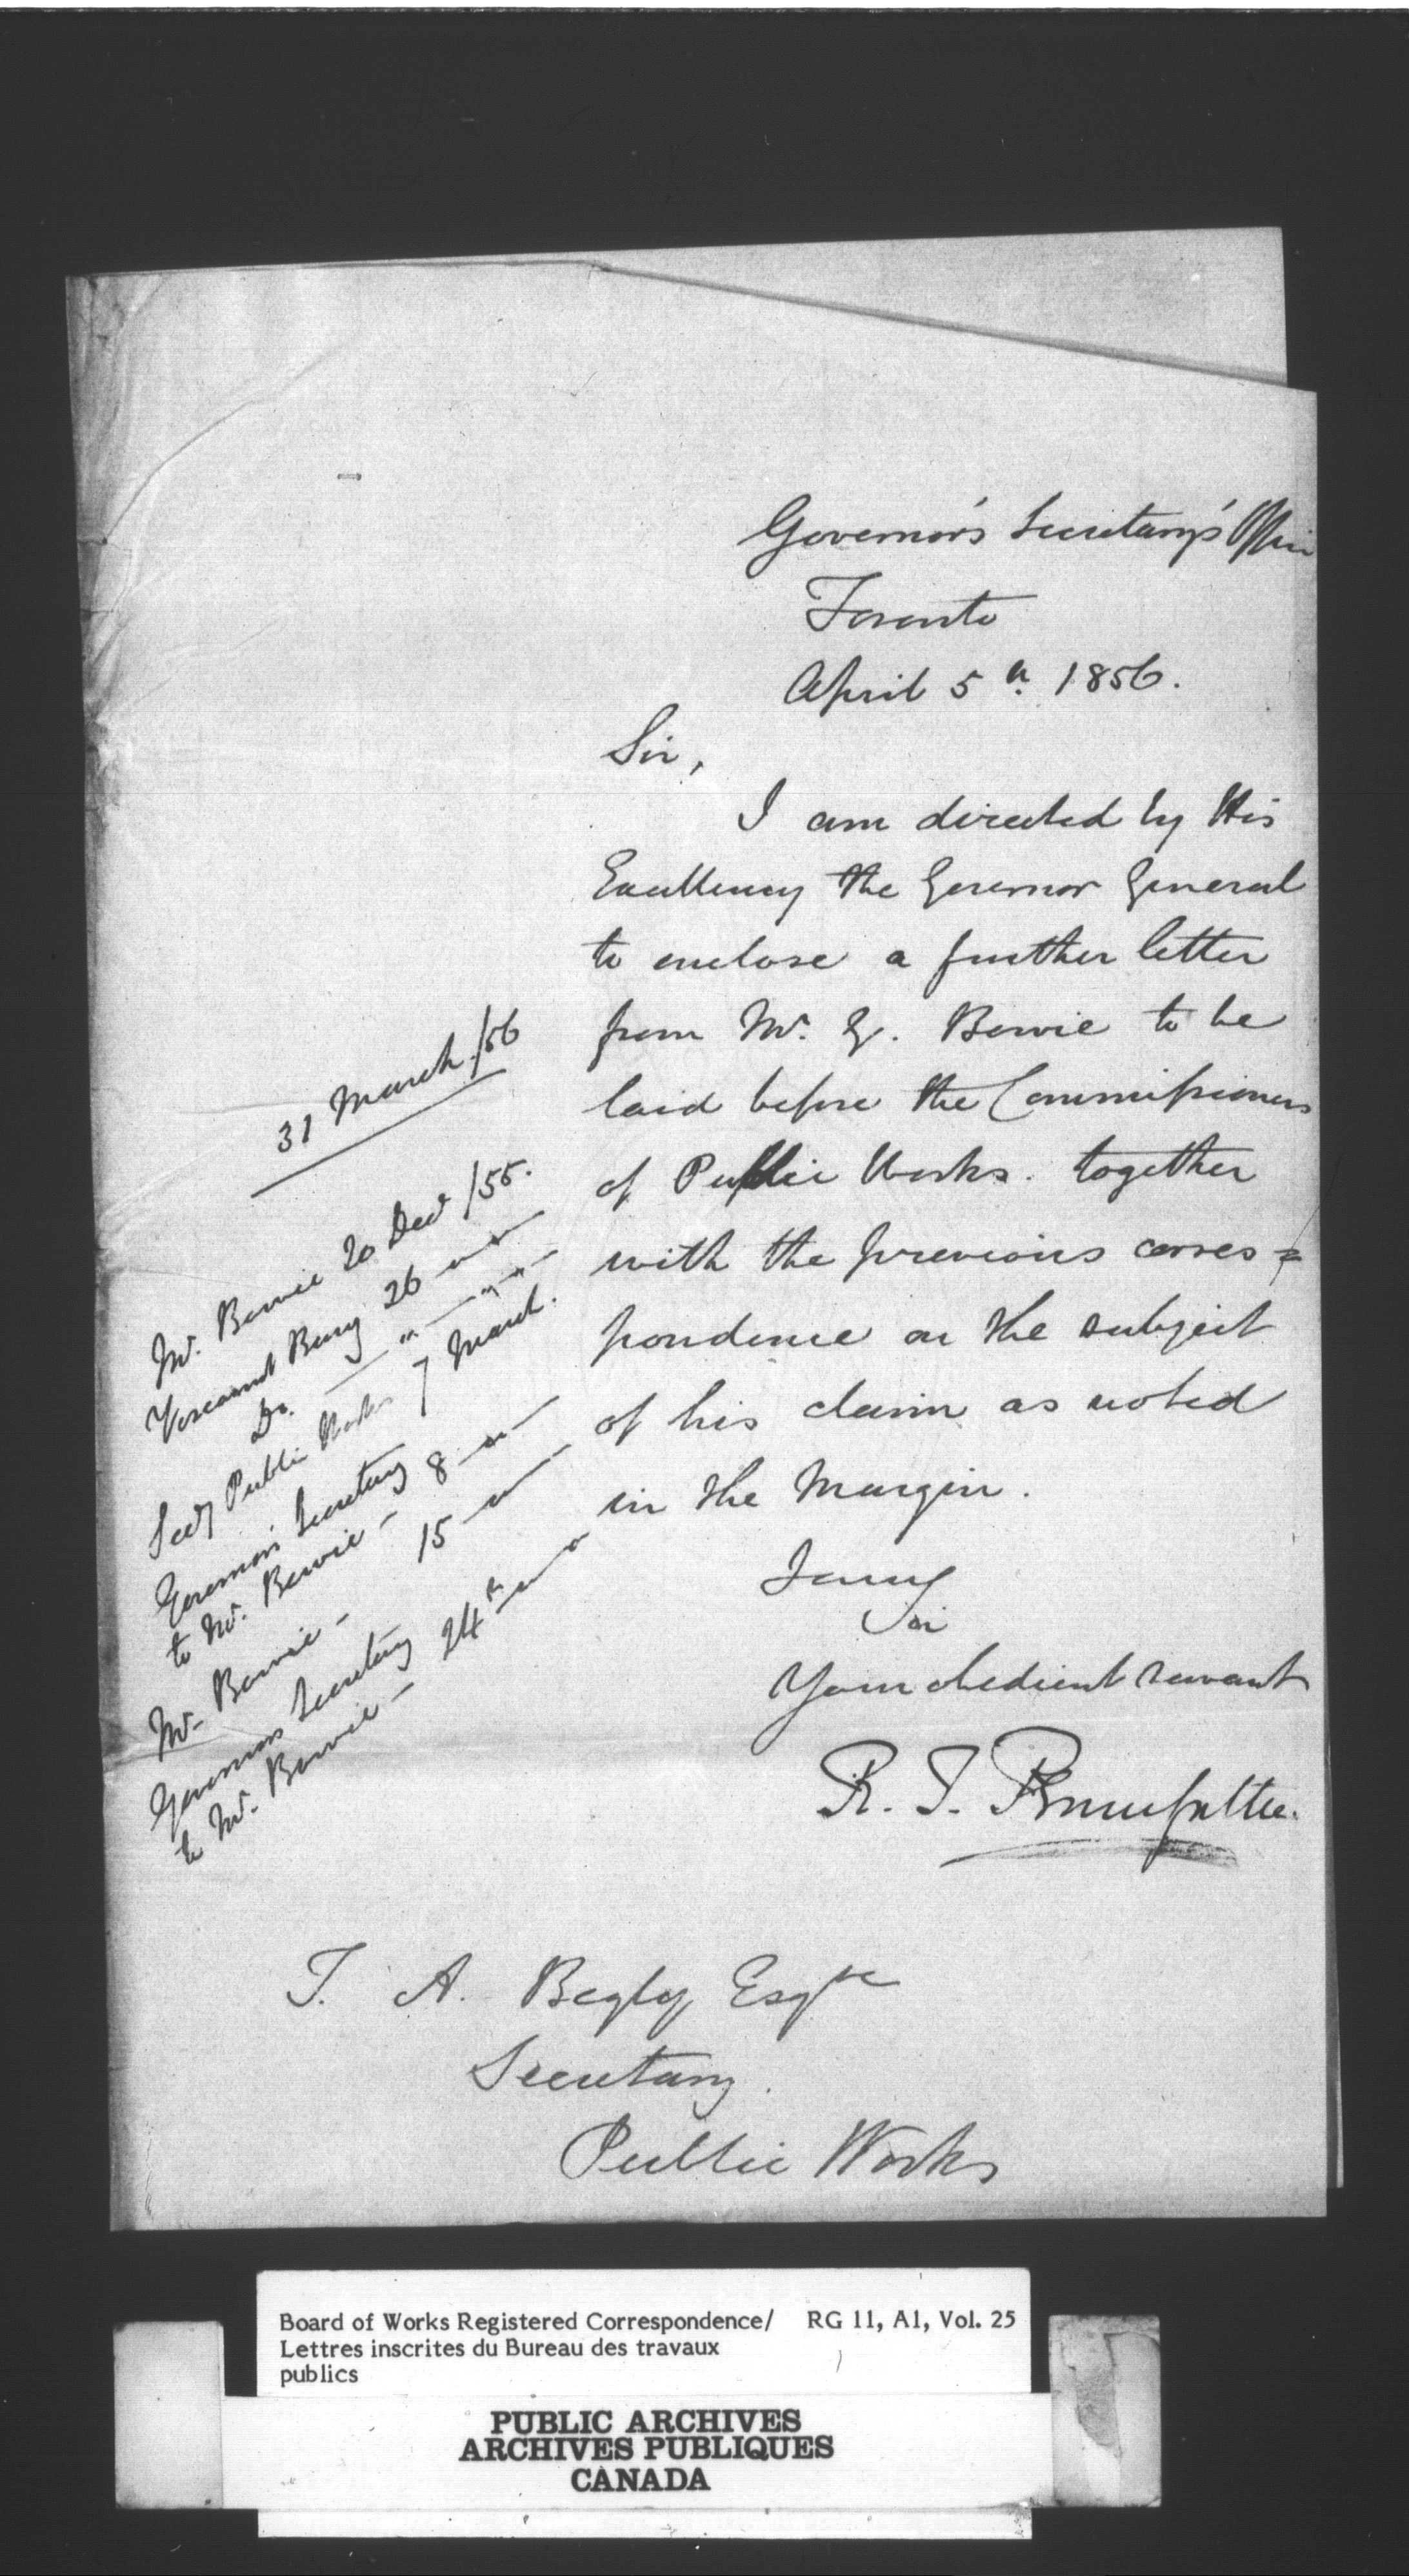 Governor's Secretary's Office
Toronto
April 5th 1856.
Sir,
I am directed by His
Excellency the Governor General
to enclose a further letter
from Mr. G. Bowie to be
laid before the Commissioners
of Public Works. together
with the previous corres=
pondence on the subject
of his claim as noted
in the Margin.
I am
Sir
Your obedient servant
R. T. Pennefather.
31 March /56
Mr. Bowie 20 Decr /55.
Viscount Bury 26 " "
Do. " " "
Secy Public Works 7 March.
Governor's Secretary
to Mr. Bowie - 8 "
Mr. Bowie - 15 "
Governors Secretary
to Mr. Bowie - 24th "
T. A. Begly Esqre
Secretary.
Public Works
Board of Works Registered Correspondence/ RG 11, A1, Vol. 25
Lettres inscrites du Bureau des travaux
publics
PUBLIC ARCHIVES
ARCHIVES PUBLIQUES
CANADA